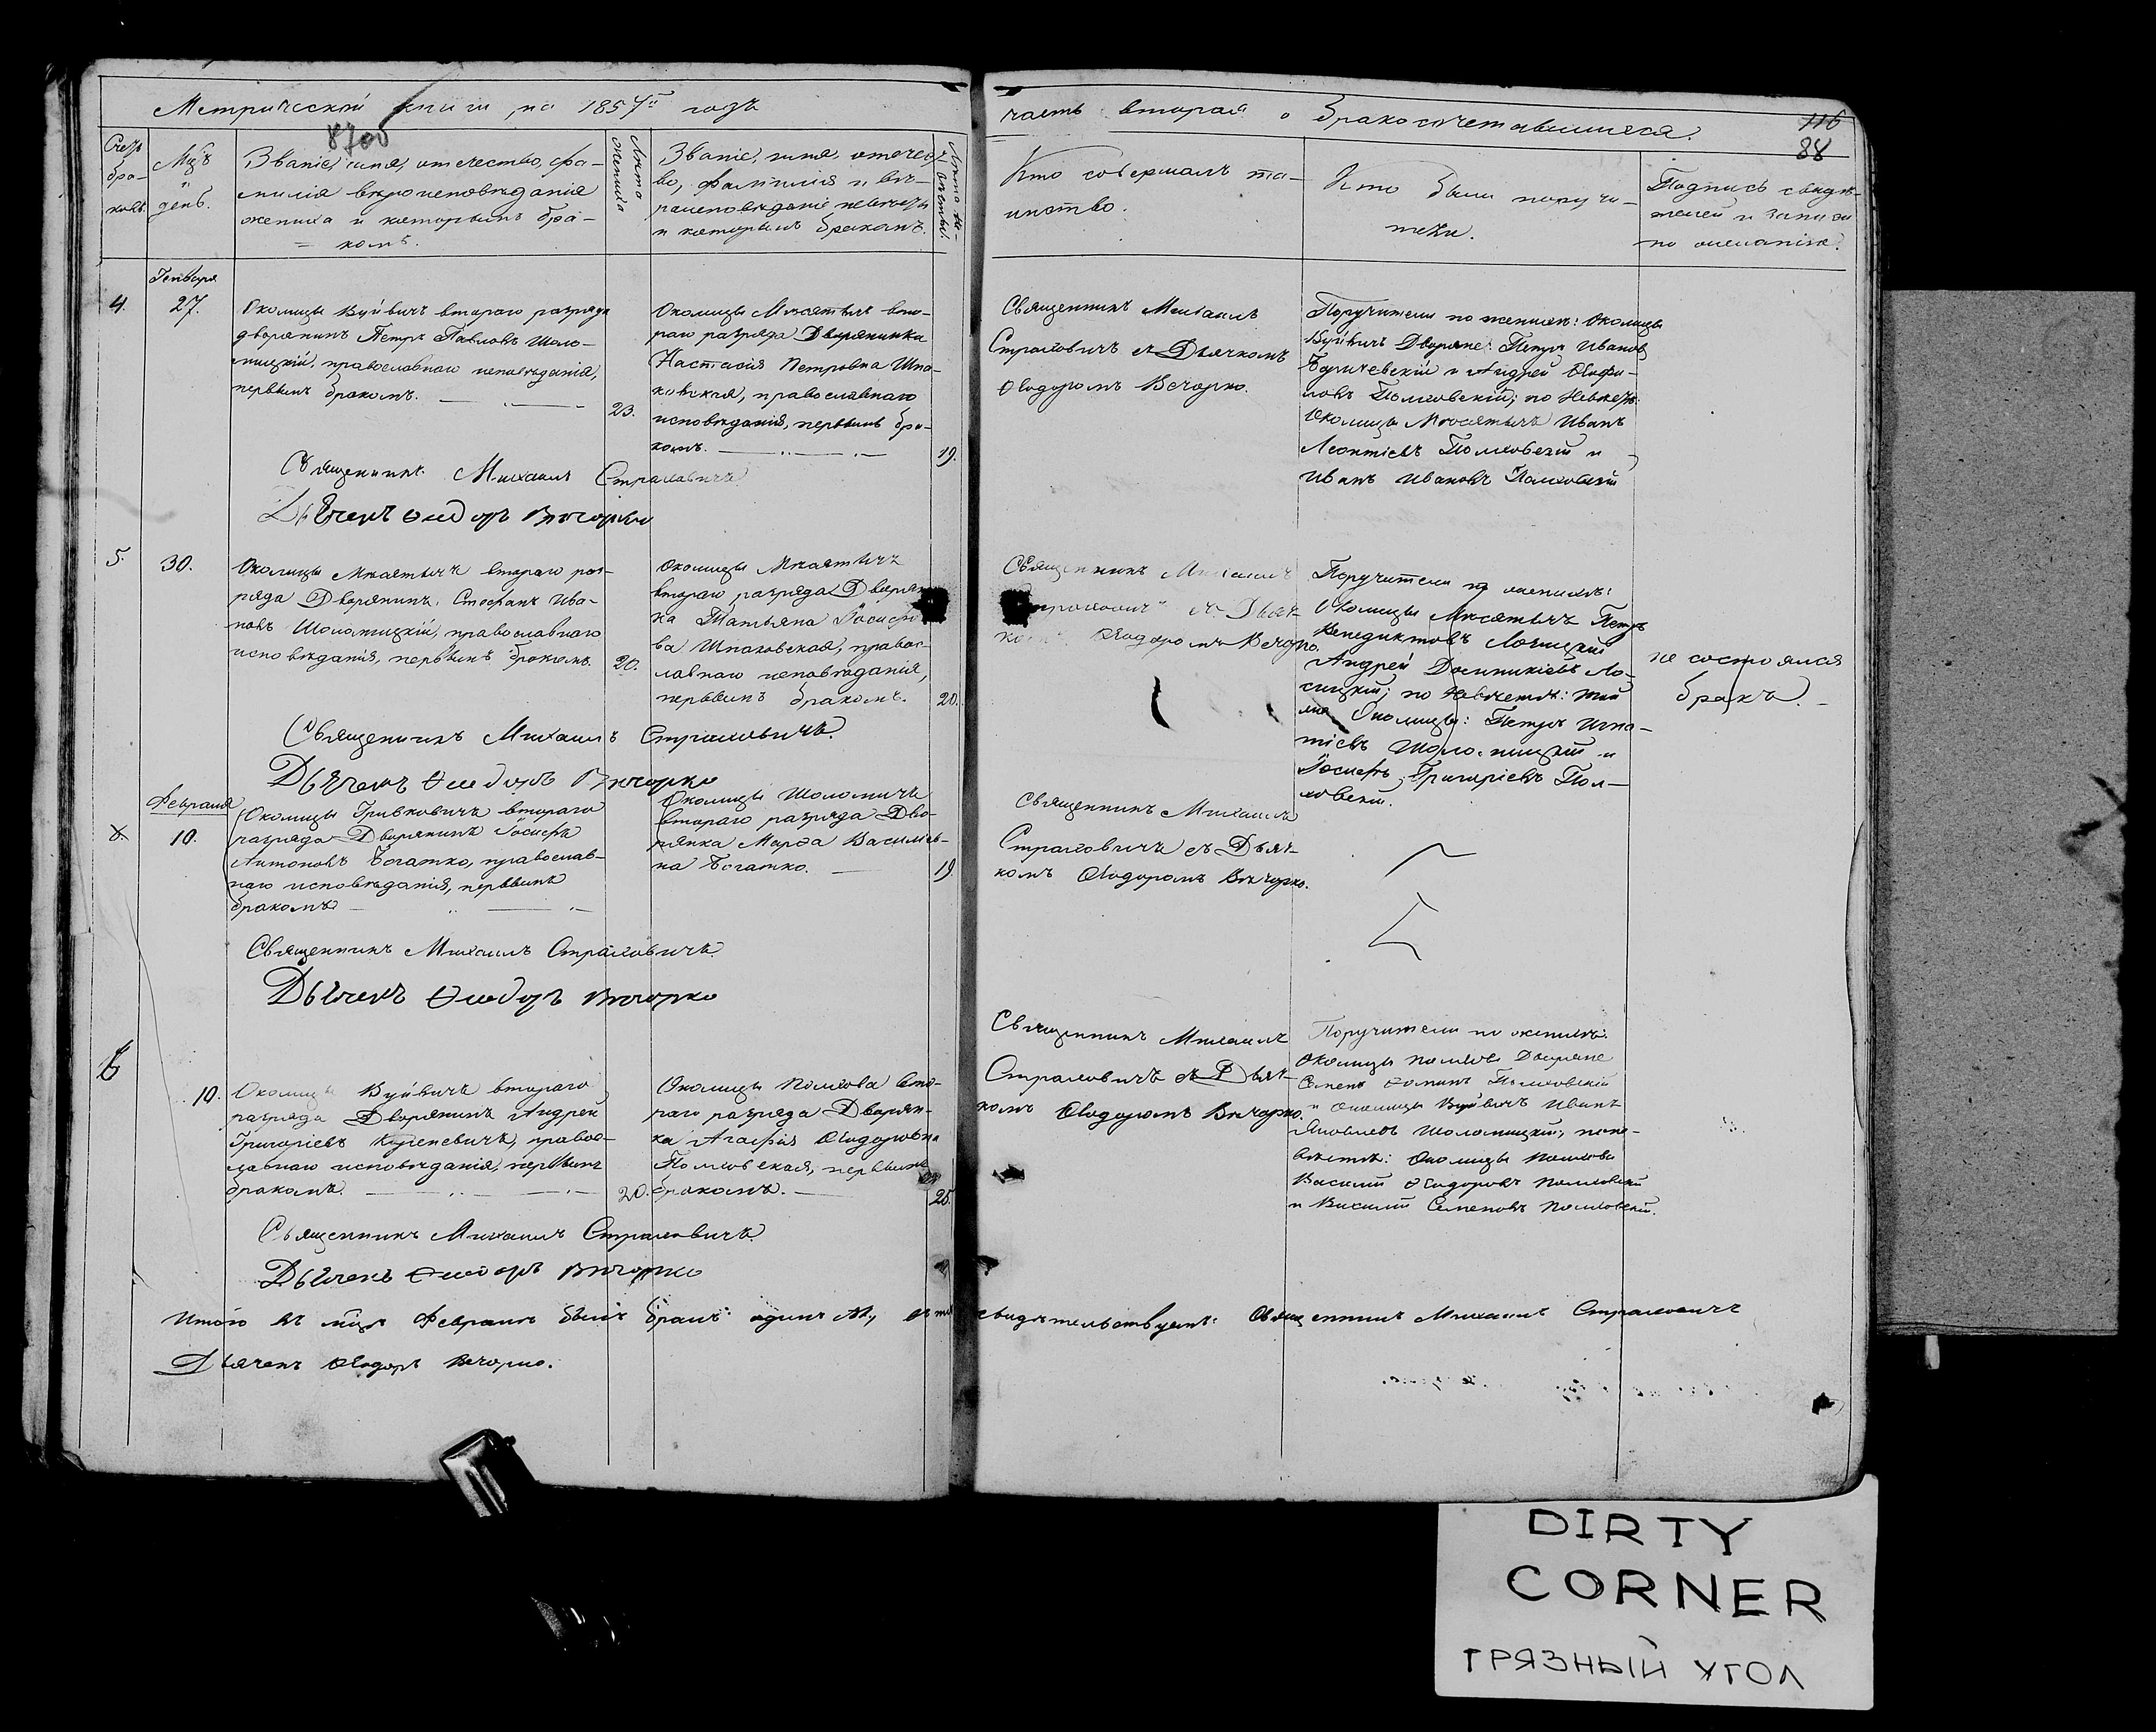 Метрической книги на 1857й годъ
часть вторая о бракосочетавшихся.
116
88
8700
Счетъ
бра-
ковъ.
Мцъ
и
день.
Званіе, имя, отечество, фа-
милія вѣроисповѣданія
жениха и которымъ бра-
комъ.
Лета
жениха
Званіе, имя, отечест-
во, фамилія и вѣ-
роисповѣданіе невесты
и которымъ бракомъ.
Кто совершалъ та-
инство.
Кто были поручи-
тели.
Подпись свидѣ-
телей и записи
по желанію.
Генваря
4.
27.
Околицы Вуйвичъ втораго разряда
дворянинъ Петръ Павловъ Шоло-
мицкій, православнаго исповѣданія,
первымъ бракомъ.
23.
Околицы Мнсятычъ вто-
раго разряда Дворянинка
Настасія Петровна Шпа-
ковская, православнаго
исповѣданія, первымъ бра-
комъ.
19.
Священникъ Михаилъ
Страховичъ съ Дьячкомъ
Ѳеодоромъ Вечорко.
Поручители по женихѣ: Околицы
Вуйвичъ Дворяне: Петръ Ивановъ
и Андрей
Полховскій; по Невѣстѣ:
Околицы Иванъ
Леонтіевъ Полховскій и
Иванъ Ивановъ Полховскій
Священникъ Михаилъ Страховичъ
Дьячекъ Ѳеодоръ Вечорко
5.
30.
Околицы Мнсятычъ втораго раз-
ряда Дворянинъ Стефанъ Ива-
новъ Шоломицкій, православнаго
исповѣданія, первымъ бракомъ.
20.
Околицы Мнсятичъ
втораго разряда Дворян-
ка Татьяна Іосифо-
ва Шпаковская, правос-
лавнаго исповѣданія,
первымъ бракомъ.
20.
Священникъ Михаилъ
Страховичъ съ Дьяч-
комъ Ѳеодоромъ Вечорко.
Поручители по женихѣ:
Околицы Мнсятычъ Петръ
Венедиктовъ Лосицкій
Андрей Доминикіевъ Ло-
сицкій; по Невѣстѣ: той
же Околицы: Петръ Игна-
тіевъ Шоломицкій и
Іосифъ Григоріевъ Пол-
ховскій.
не состоялся
бракъ.
Священникъ Михаилъ Страховичъ.
Дьячекъ Ѳеодоръ Вечорко
Февраля
10.
Околицы Гривковичъ втораго
разряда Дворянинъ Іосифъ
Антоновъ Богатко, православ-
наго исповѣданія, первымъ
бракомъ
Околицы Шоломичъ
втораго разряда Дво-
рянка Марѳа Василіев-
на Богатко.
19.
Священникъ Михаилъ
Страховичъ съ Дьяч-
комъ Ѳеодоромъ Вечорко.
Священникъ Михаилъ Страховичъ.
Дьячекъ Ѳеодоръ Вечорко
6
10.
Околицы Вуйвичъ втораго
разряда Дворянинъ Андрей
Григоріевъ правос-
лавнаго исповѣданія, первымъ
бракомъ.
20.
Околицы Полхова вто-
раго разряда Дворян-
ка Агафія Ѳеодоровна
Полховская, первымъ
бракомъ.
25.
Священникъ Михаилъ
Страховичъ съ Дьяч-
комъ Ѳеодоромъ Вечорко.
Поручители по женихѣ:
Околицы Полхова Дворяне
Семенъ Ѳоминъ Полховскій
и Околицы Вуйвичъ Иванъ
Яковлевъ Шоломицкій, по не-
вѣстѣ: Околицы Полхова
Василій Ѳеодоровъ Полховскій
и Василій Семеновъ Полховскій.
Священникъ Михаилъ Страховичъ.
Дьячекъ Ѳеодоръ Вечорко
Итого въ мцѣ Февралѣ былъ бракъ одинъ №1, въ томъ свидѣтельствуемъ: Священникъ Михаилъ Страховичъ
Дьячекъ Ѳеодоръ Вечорко.
DIRTY
CORNER
ГРЯЗНЫЙ УГОЛ